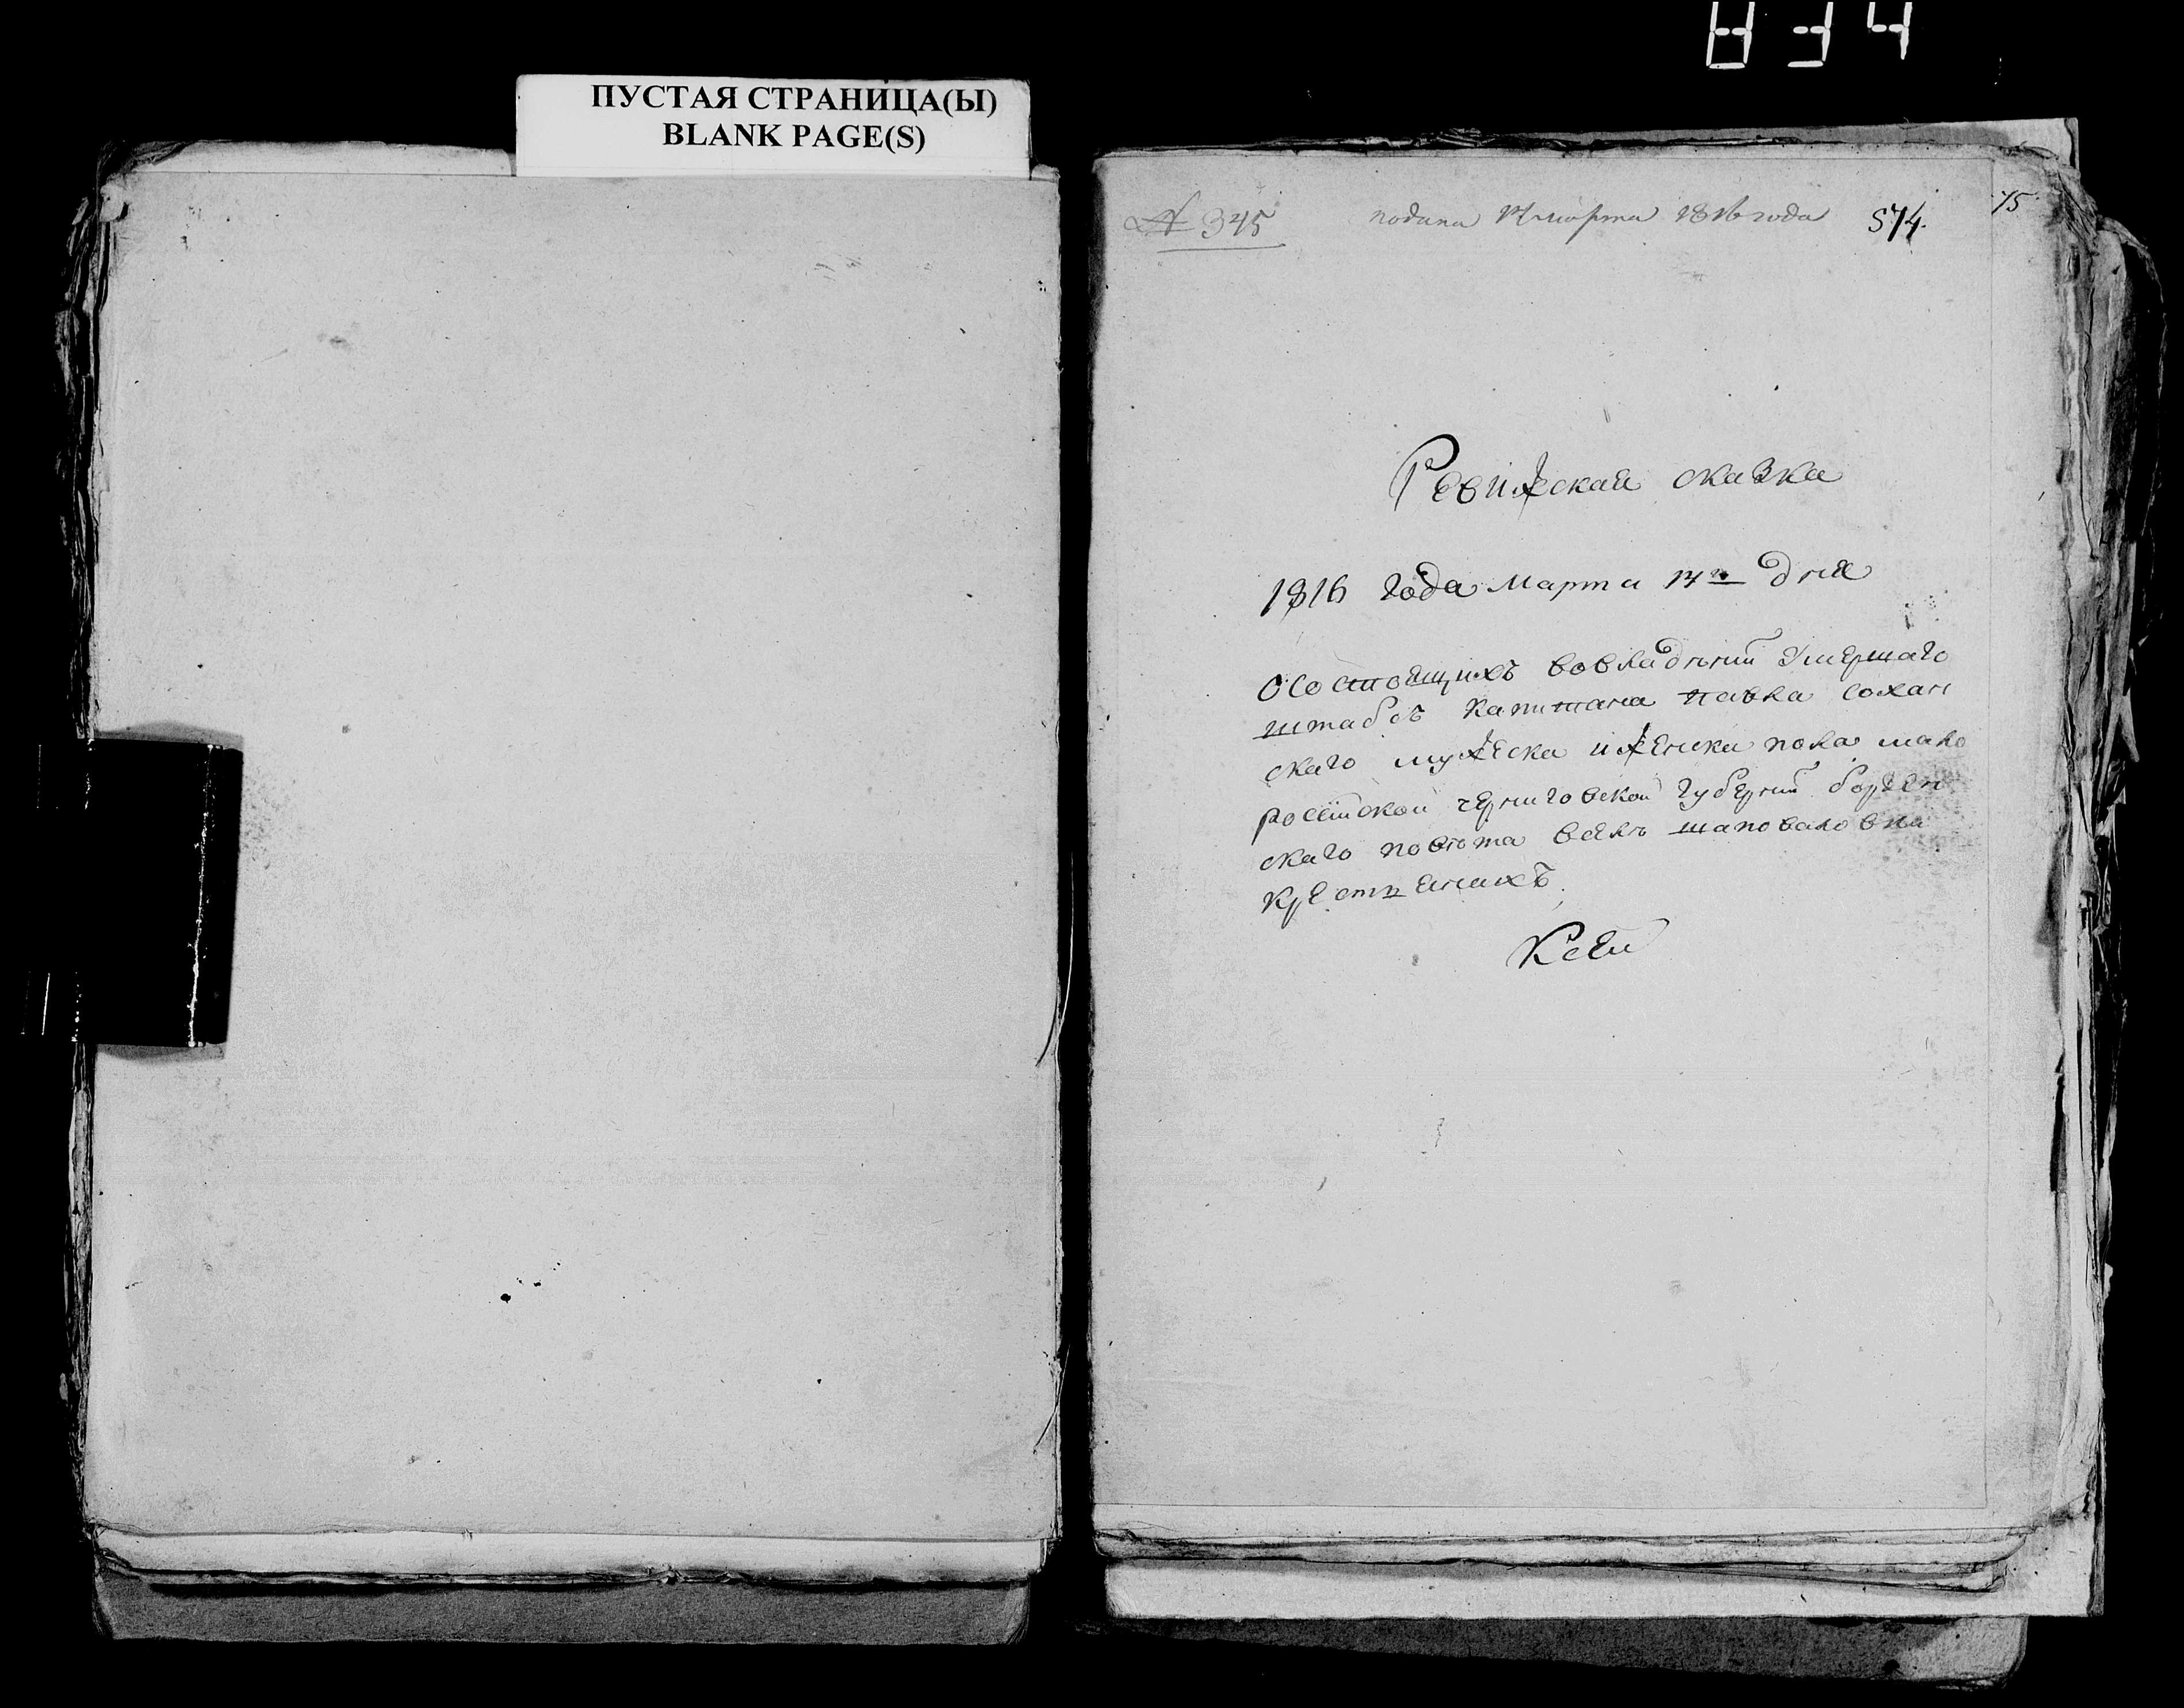 834
ПУСТАЯ СТРАНИЦА(Ы)
BLANK PAGE(S)
№ 345 подана 14 марта 1816 года 574. 75
Ревижская сказка
1816 года марта 14го дня
Осостоящихъ вовладѣнии умершаго
штабсъ капитана павла сохан
скаго мужеска ижениска пола мало
росѣйской черниговской губернии борзен
скаго повѣта вселѣ шаповаловки
крестьянахъ